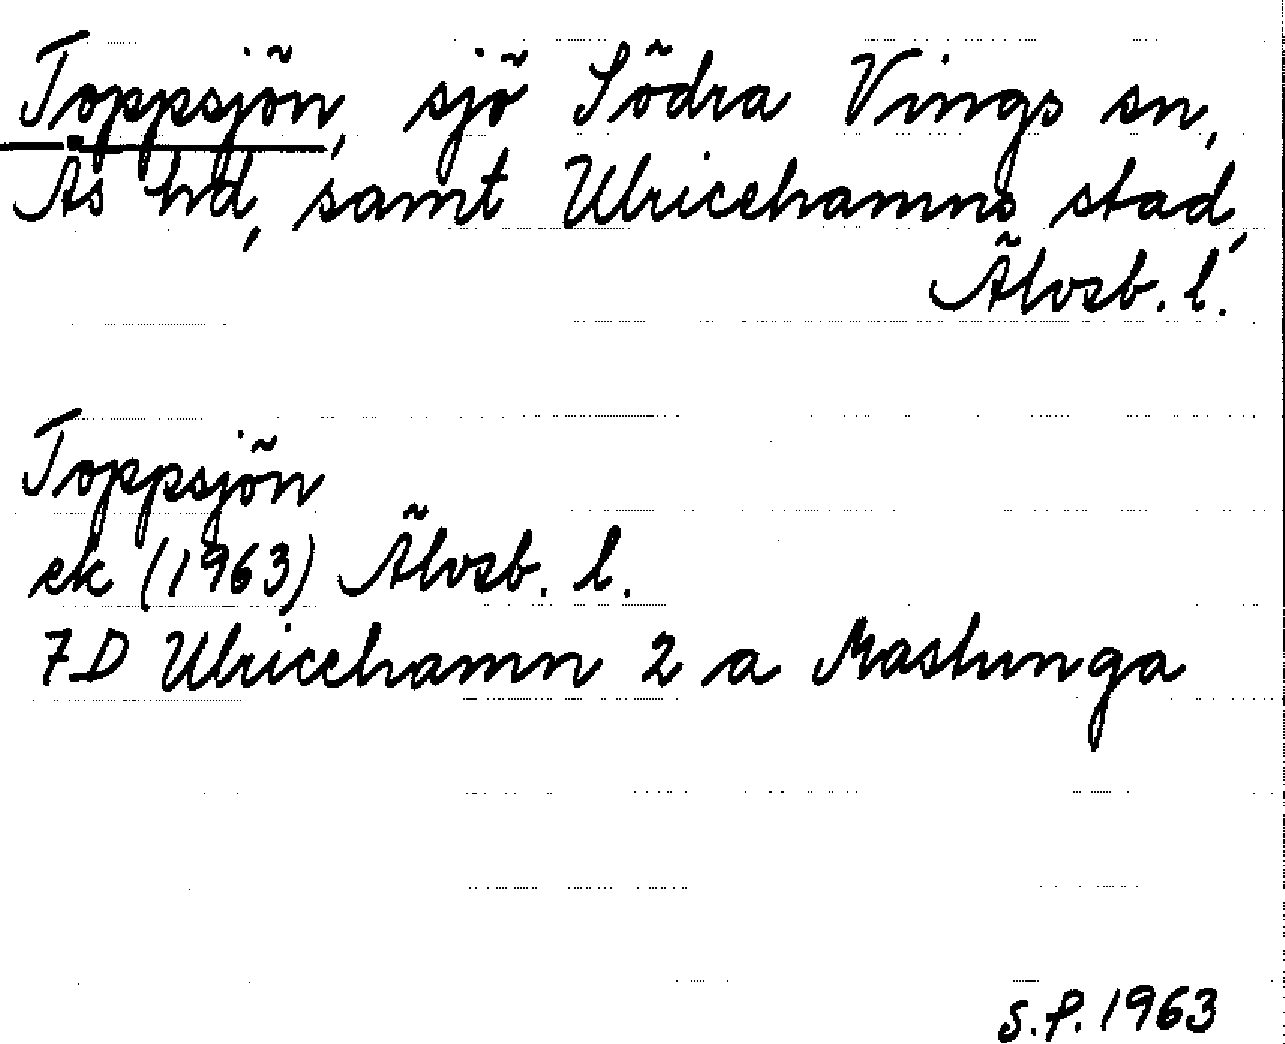 Toppsjön, sjö Södra Vings sn,
Ås hd, samt Ulricehamns stad,
Älvsb. l.
Toppsjön
ek (1963) Älvsb. l.
7D Ulricehamn 2 a Mastunga
S.P. 1963